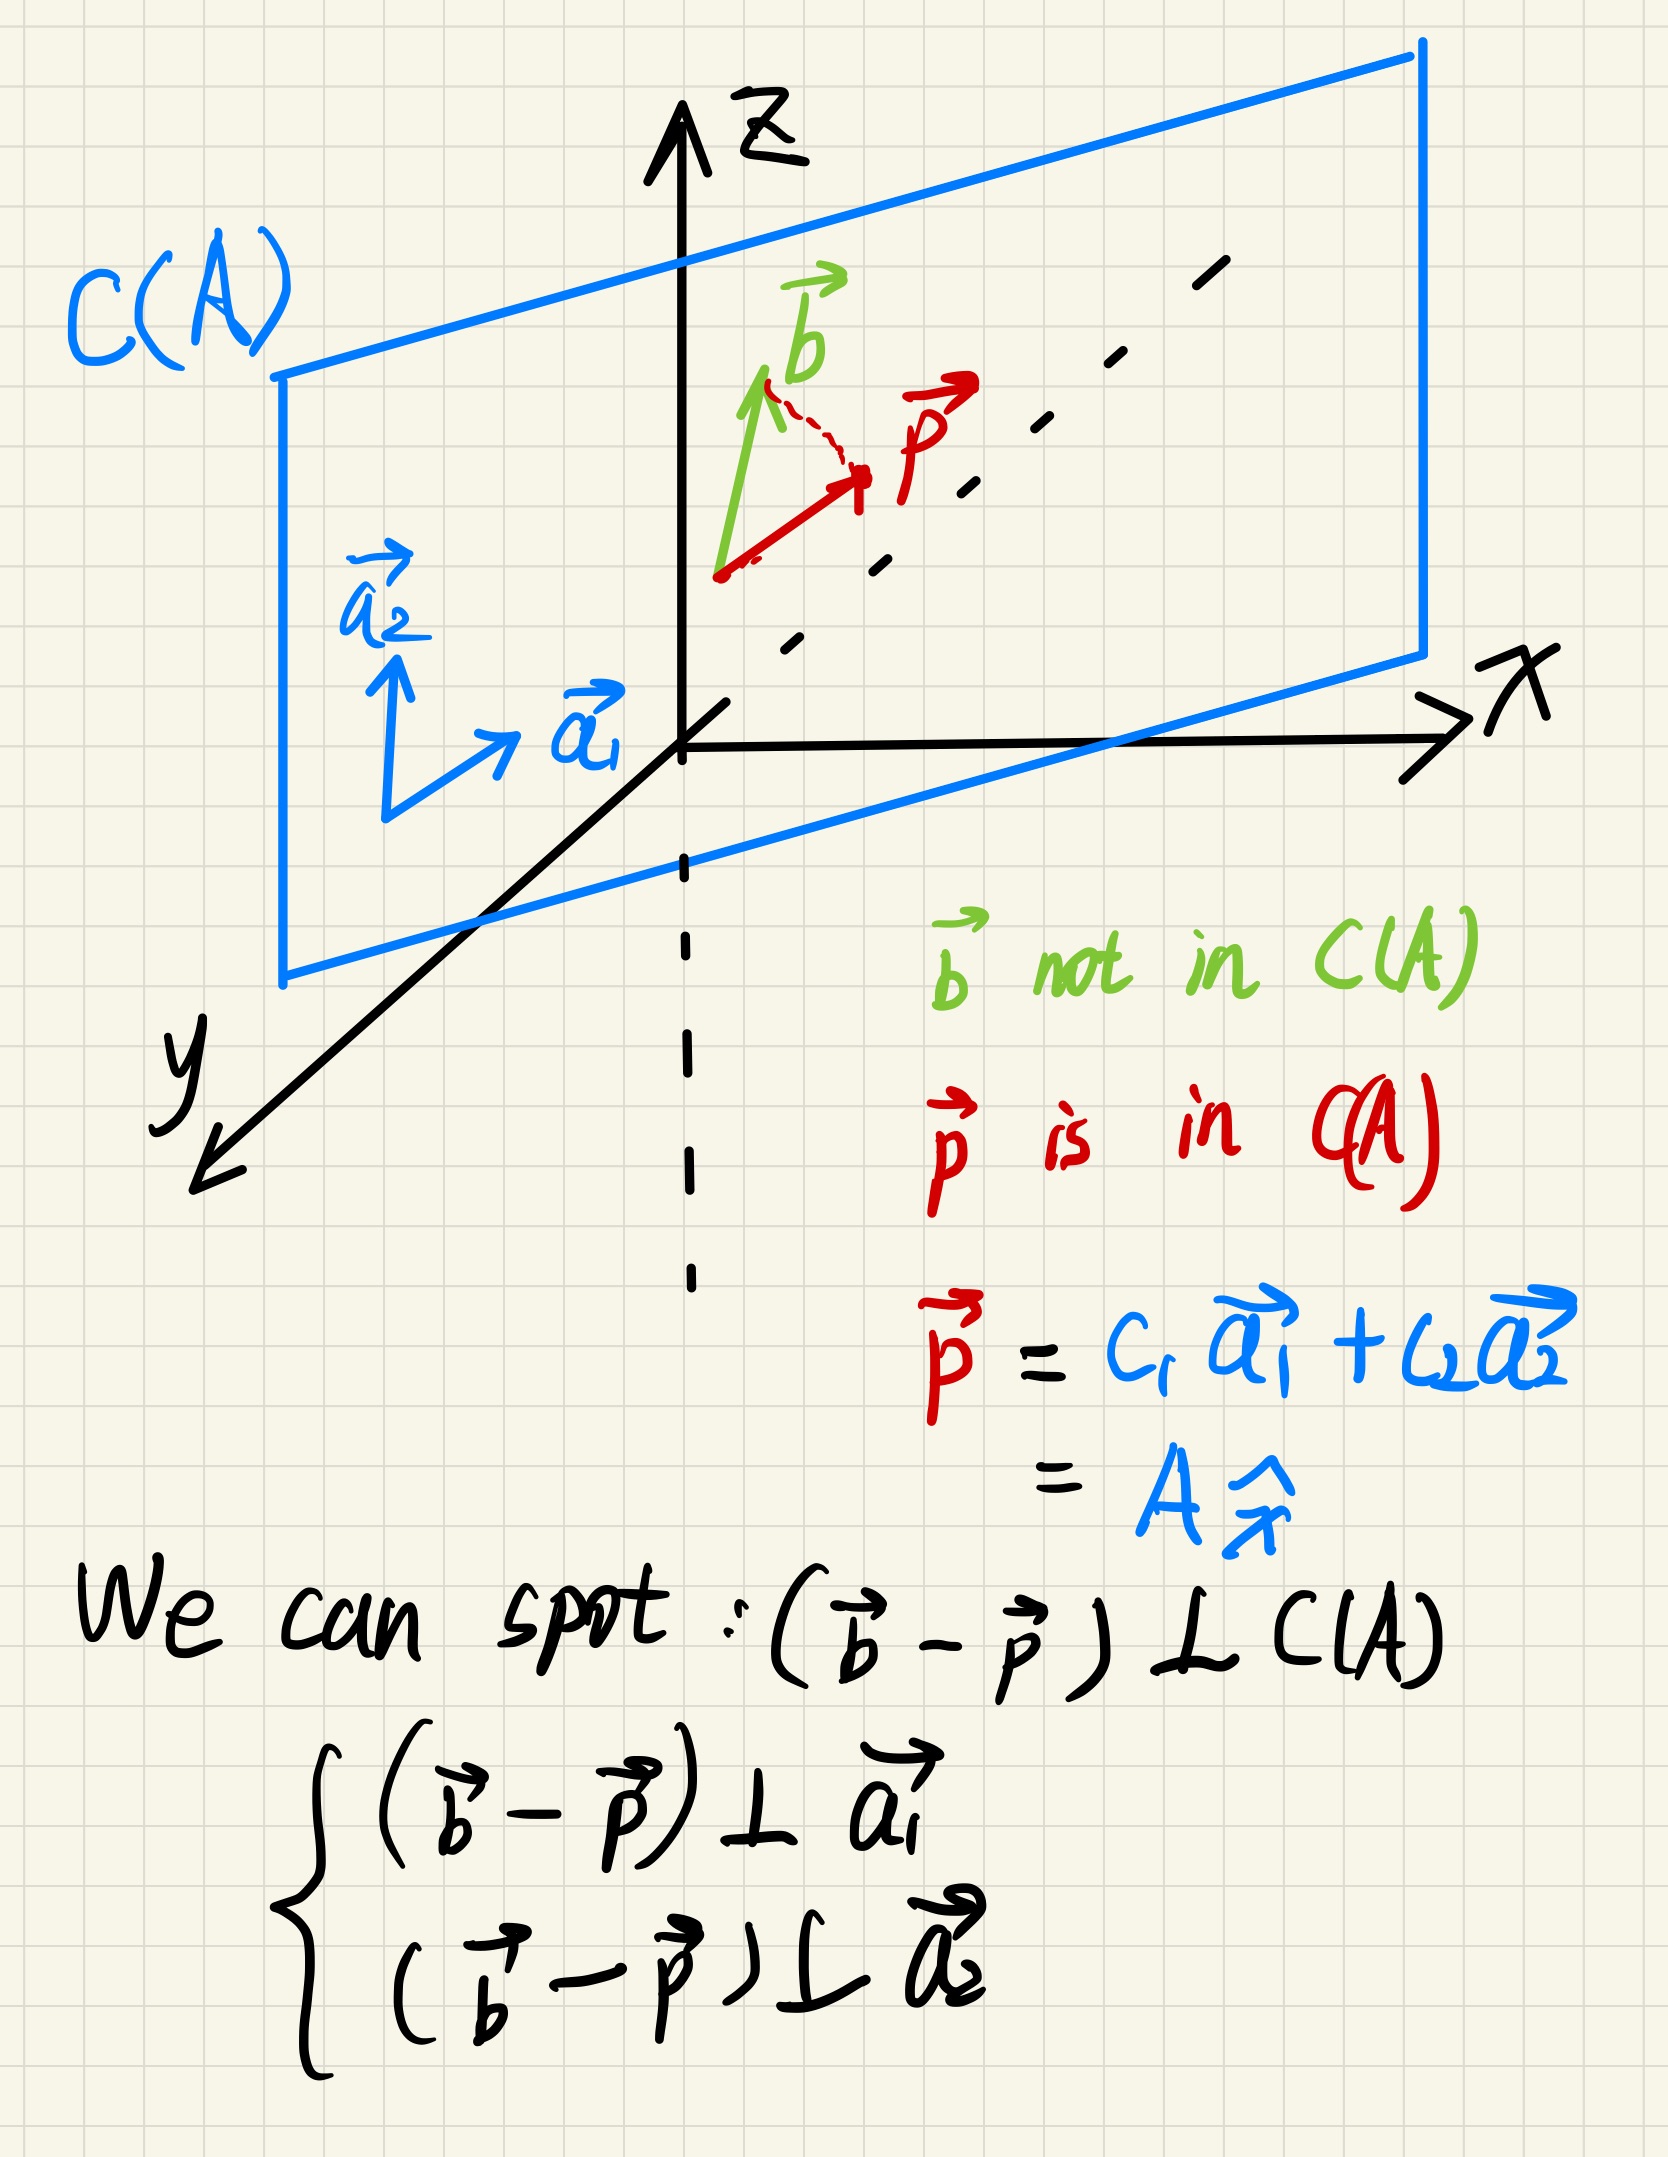 z
C(A)
b⃗
p⃗
a₂⃗
a₁⃗
x
y
b⃗ not in C(A)
p⃗ is in C(A)
p⃗ = c₁a₁⃗ + c₂a₂⃗
= A x̂
We can spot : (b⃗ − p⃗) ⊥ C(A)
{ (b⃗ − p⃗) ⊥ a₁⃗
(b⃗ − p⃗) ⊥ a₂⃗